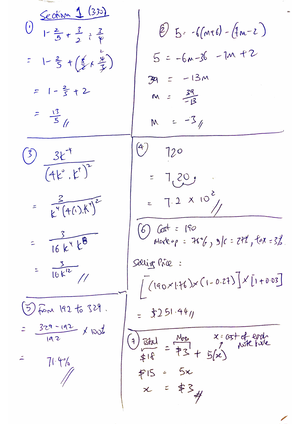 Section 1 (33%)
①
1 - 2/5 + 3/2 ÷ 3/4
= 1 - 2/5 + (3/2 × 4/3)
= 1 - 2/5 + 2
= 13/5 //
② 5 = -6(m+6) - (7m-2)
5 = -6m - 36 - 7m + 2
39 = -13m
m = 39/-13
m = -3 //
③ 3k⁻⁴
(4k⁰ . k⁴)²
= 3
k⁴ (4(1) . k⁴)²
= 3
16 k⁴ k⁸
= 3
16 k¹² //
④ 720
= 7.20.
= 7.2 × 10² //
⑤ From 192 to 329.
= 329 - 192 / 192 × 100%
= 71.4% //
⑥ Cost = 190
Markup = 78%, 27%, tax = 3%
Selling Price:
[(190 × 1.78) × (1 - 0.27)] × [1 + 0.03]
= $251.44 //
⑦ Total
$18 = $3 + 5(x)
x = cost of each
$15 = 5x
x = $3 //